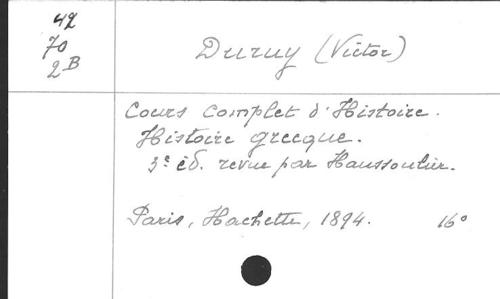 42
70
2B
Duruy (Victor)
Cours complet d'Histoire.
Histoire grecque.
3e éd. revue par Haussoulier.
Paris, Hachette, 1894. 16°